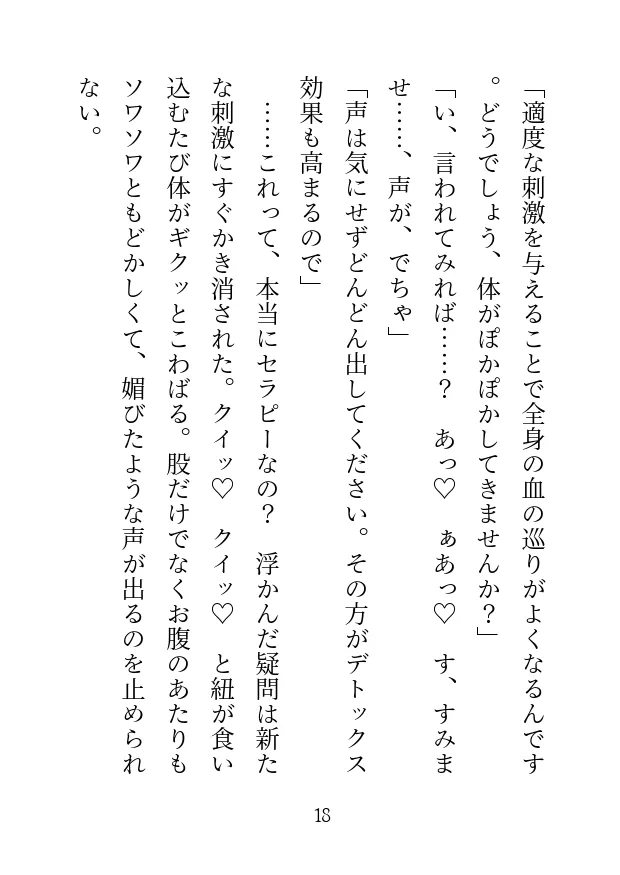 「適度な刺激を与えることで全身の血の巡りがよくなるんです
。どうでしょう、体がぽかぽかしてきませんか？」
「い、言われてみれば……？　あっ♡　ぁあっ♡　す、すみま
せ……、声が、でちゃ」
「声は気にせずどんどん出してください。その方がデトックス
効果も高まるので」
　……これって、本当にセラピーなの？　浮かんだ疑問は新た
な刺激にすぐかき消された。クイッ♡　クイッ♡　と紐が食い
込むたび体がギクッとこわばる。股だけでなくお腹のあたりも
ソワソワともどかしくて、媚びたような声が出るのを止められ
ない。
18